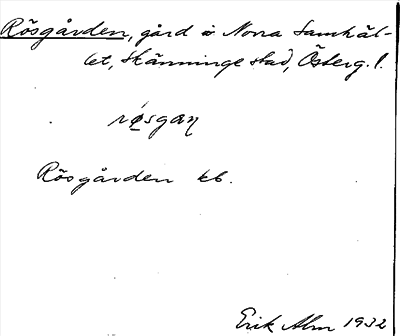 Rösgården, gård å Norra Samhäl-
let, Skänninge stad, Österg. l.
røsgaɳ
Rösgården kb.
Erik Alm 1932